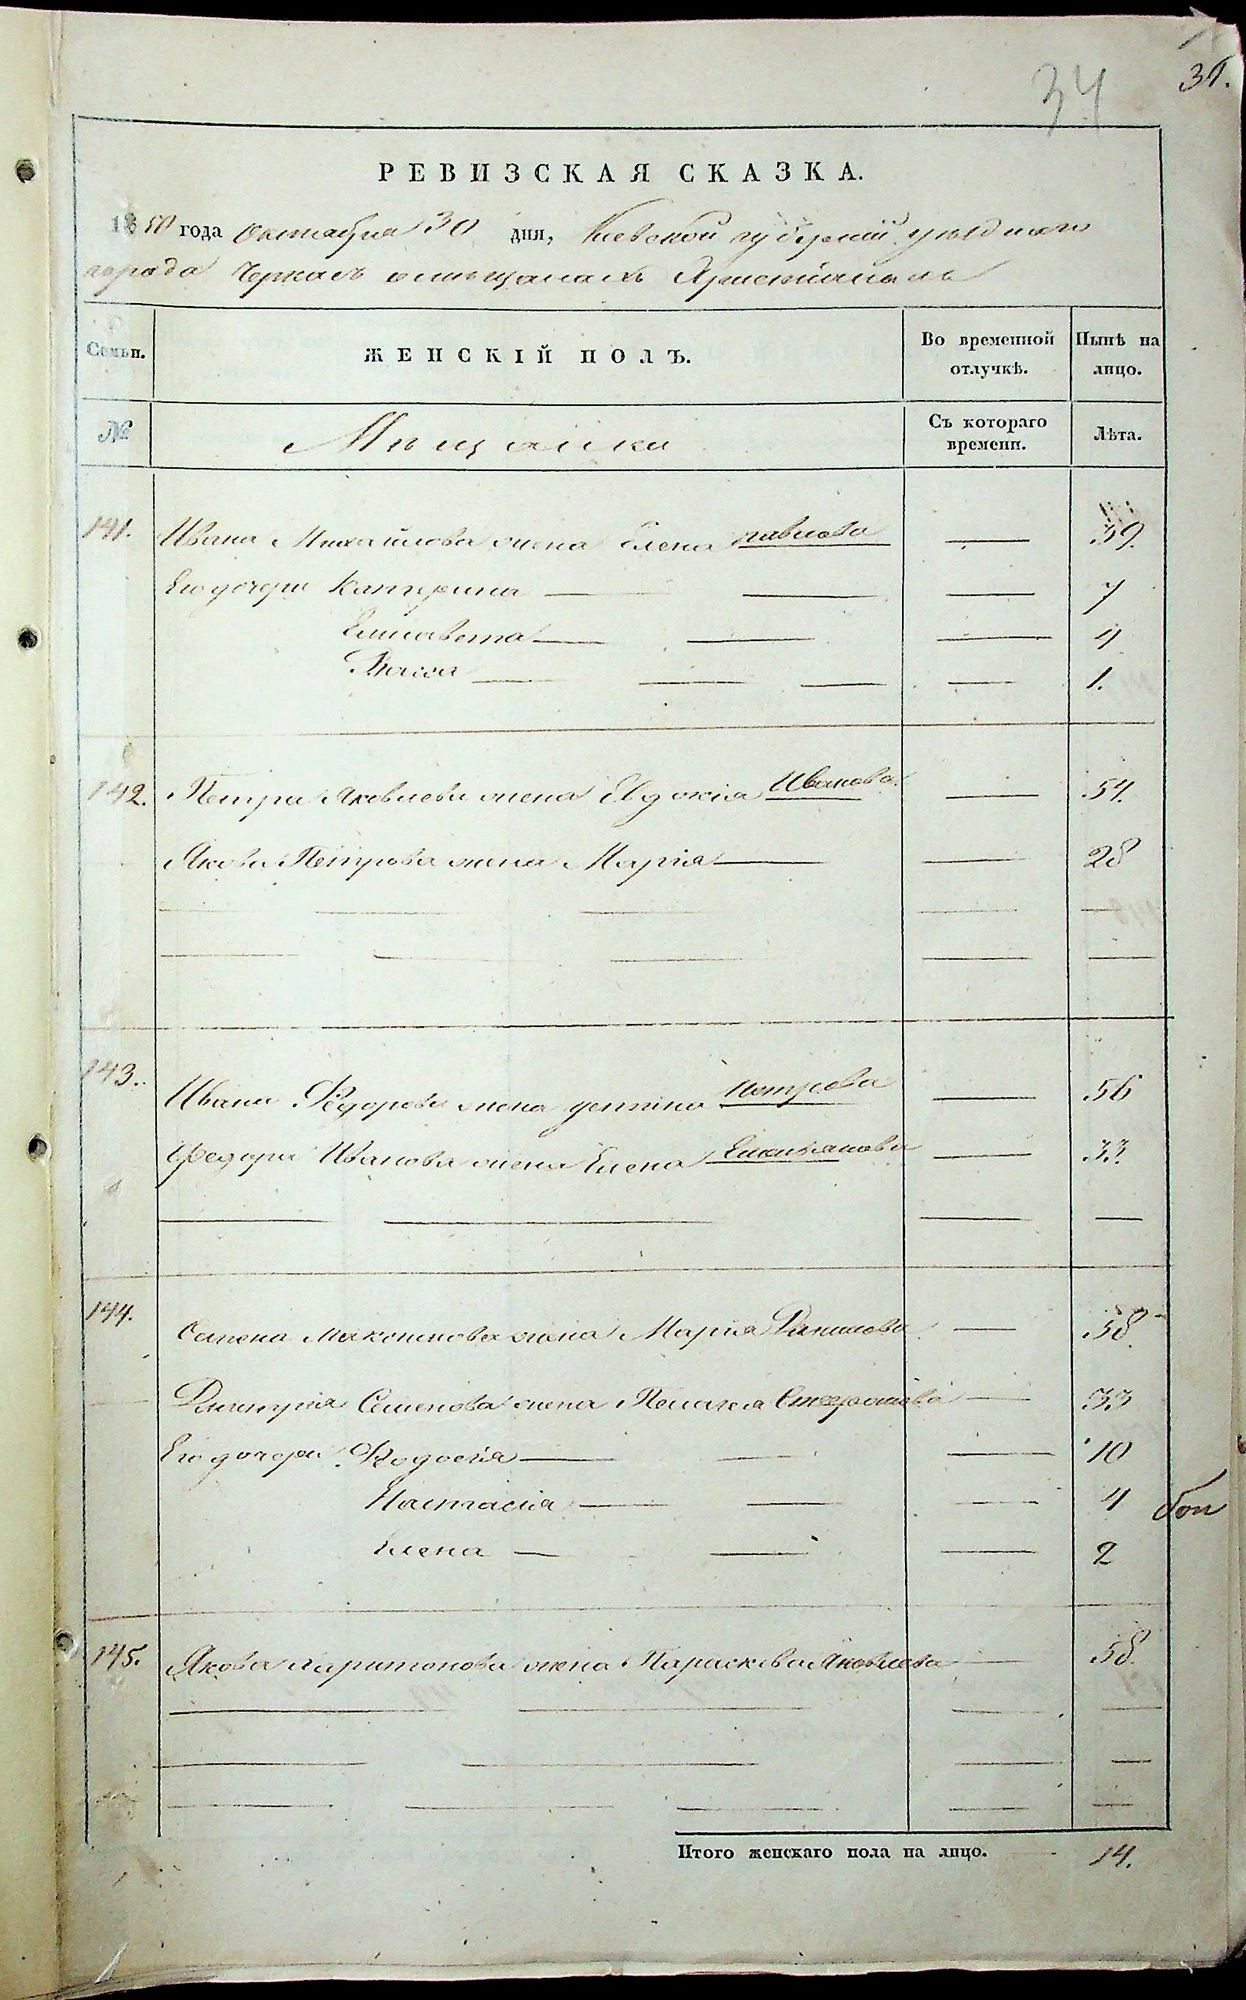 34
31.
РЕВИЗСКАЯ СКАЗКА.
1850 года октября 30 дня, Киевской губернии уезднаго
города Черкас о мещанах христианах
Семьи. ЖЕНСКІЙ ПОЛЪ. Во временной отлучкѣ. Нынѣ на лицо.
№ Мещанки Съ котораго времени. Лѣта.
141. Ивана Михайлова жена Елена павлова 39.
Его дочери Катерина 7
Елисавета 4
1.
142. Петра Яковлева жена Евдокія Иванова 54.
Якова Петрова жена Марія 28
143. Ивана Федорова жена устина петрова 56
Федора Иванова жена Елена Емельянова 33
144. Семена жена Марія Данилова 58.
Дмитрія Семенова жена Пелагея 33
Его дочери Федосія 10
Настасія 4
Елена 2
145. Якова Харитонова жена Параскева Яковлева 58.
Итого женскаго пола на лицо. 14.